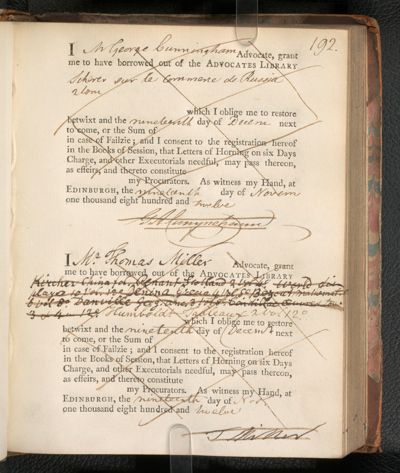 192.
I Mr George Cunningham Advocate, grant
me to have borrowed out of the ADVOCATES LIBRARY
Scherer sur le commerce de Russia
2 tom
which I oblige me to restore
betwixt and the nineteenth day of Decem next
to come, or the Sum of
in case of Failzie; and I consent to the registration hereof
in the Books of Session, that Letters of Horning on six Days
Charge, and other Executorials needful, may pass thereon,
as effeirs, and thereto constitute
my Procurators. As witness my Hand, at
EDINBURGH, the nineteenth day of Novem
one thousand eight hundred and twelve
I Mr Thomas Miller Advocate, grant
me to have borrowed out of the ADVOCATES LIBRARY
Kircher China
Danville
Humboldt Tableaux 2 vol 12o
which I oblige me to restore
betwixt and the nineteenth day of Decemr next
to come, or the Sum of
in case of Failzie; and I consent to the registration hereof
in the Books of Session, that Letters of Horning on six Days
Charge, and other Executorials needful, may pass thereon,
as effeirs, and thereto constitute
my Procurators. As witness my Hand, at
EDINBURGH, the nineteenth day of Nov
one thousand eight hundred and twelve
T Miller